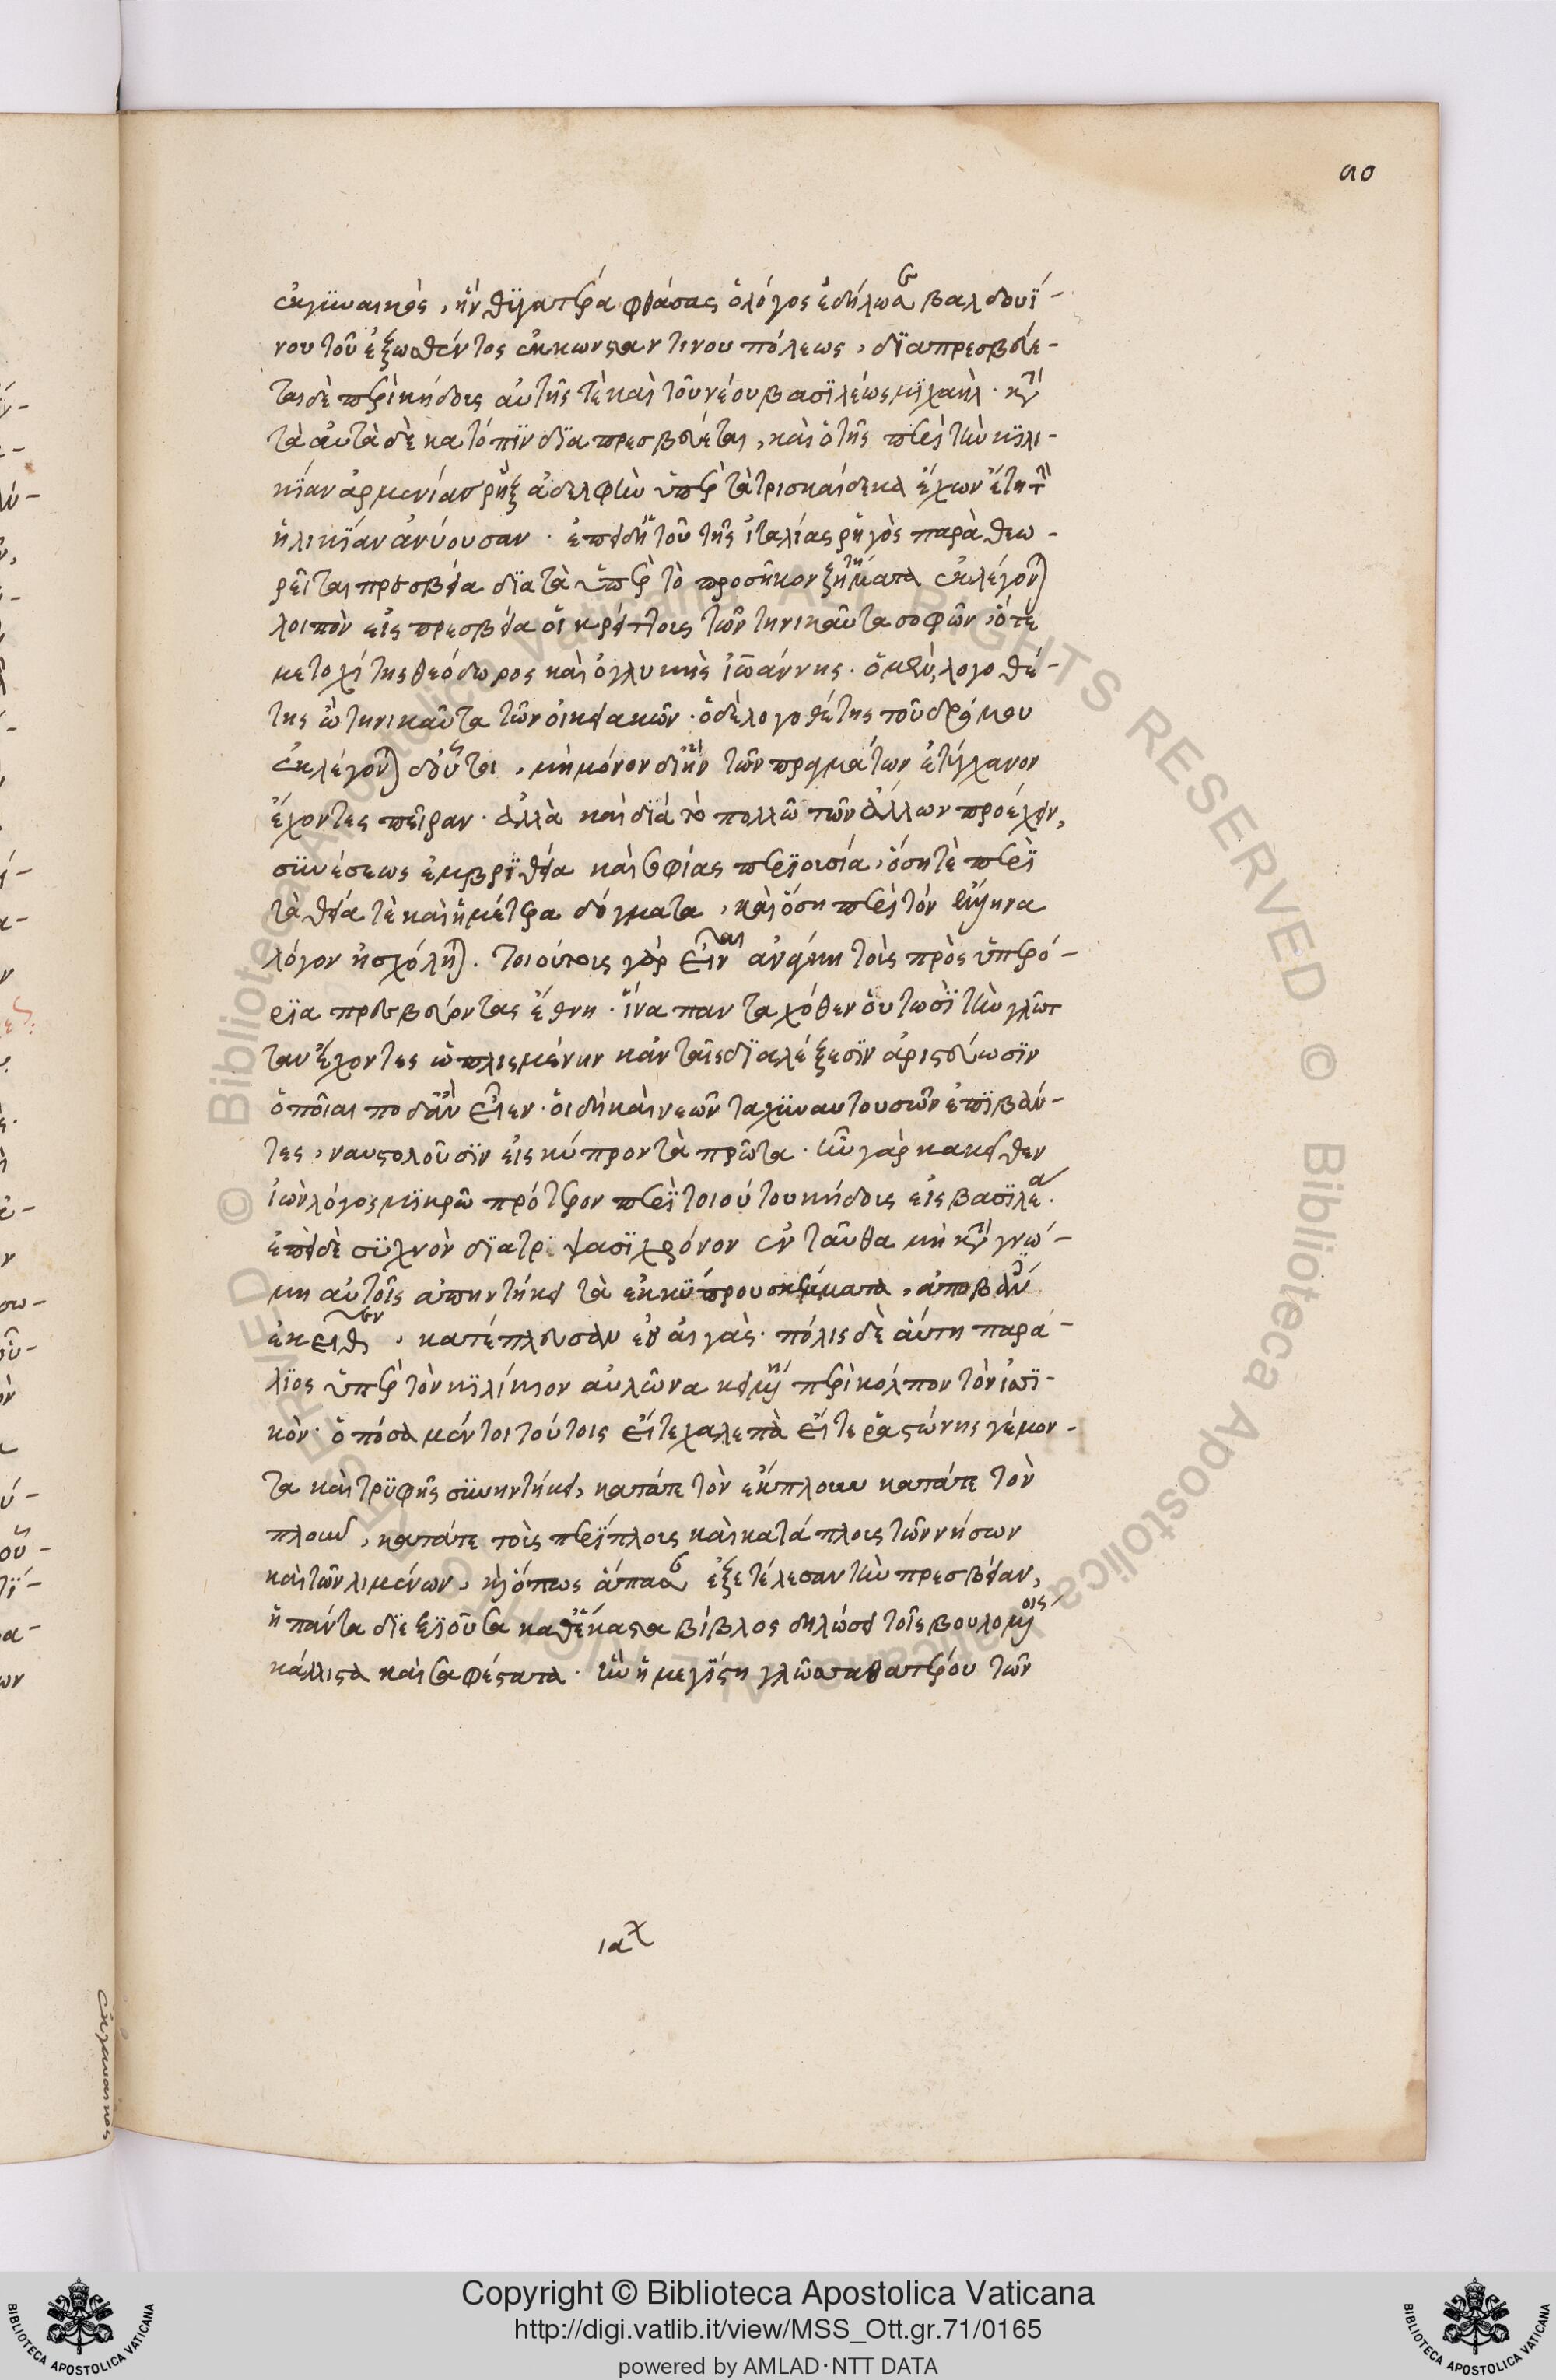 ἐκγυναικὸς, ἣν θυγατέρα φθάσας ὁ λόγος ἐδήλωσε βαλδουΐ-
νου τοῦ ἐξωσθέντος ἐκ κωνσταντίνου πόλεως, διαπρεσβεύε-
ται δὲ περὶ κήδους αὐτῆς τὲ καὶ τοῦ νέου βασιλέως μιχαήλ. κατὰ
τὰ αὐτὰ δὲ κατόπιν διαπρεσβεύεται, καὶ ὁ τῆς περὶ τὴν κιλι-
κίαν ἀρμενίας ῥὴξ ἀδελφὴν ὑπὲρ τὰ τρισκαίδεκα ἔχων ἔτη τὴν
ἡλικίαν ἀνύουσαν. ἐπειδὴ τοῦ τῆς ἰταλίας ῥηγὸς παρὰ θεω-
ρεῖται πρεσβεία διὰ τὰ ὑπὲρ τὸ προσῆκον ζητήματα ἐκλέγονται
λοιπὸν εἰς πρεσβεία οἱ κρείττους τῶν τηνικαῦτα σοφῶν, ὅτε
μετοχίτης θεόδωρος καὶ ὁ γλυκὺς ἰωάννης. ὁ μὲν, λογοθέ-
της ὢν τηνικαῦτα τῶν οἰκειακῶν. ὁ δὲ λογοθέτης τοῦ δρόμου
ἐκλέγονται δ' οὗτοι, μὴ μόνον δι' ἣν τῶν πραγμάτων ἐτύγχανον
ἔχοντες πεῖραν. ἀλλὰ καὶ διὰ τὸ πολλῶ τῶν ἄλλων προέχειν,
συνέσεως ἐμβριθεία καὶ σοφίας περιουσία, ὅση τὲ περὶ
τὰ θεῖα τὲ καὶ ἡμέτερα δόγματα, καὶ ὅση περὶ τὸν ἕλληνα
λόγον ἠσχόληται. τοιούτους γὰρ εἶναι ἀνάγκη τοὺς πρὸς ὑπερό-
ρια πρεσβεύοντας ἔθνη. ἵνα πανταχόθεν οὑτωσὶ τὴν γλῶτ
ταν ἔχοντες ὡπλισμένην κἀν ταῖς διαλέξεσιν ἀριστεύωσιν
ὁποῖαι ποδ' ἂν εἶεν. οἱ δὴ καὶ νεῶν ταχυναυτουσῶν ἐπιβάν-
τες, ναυστολοῦσιν εἰς κύπρον τὰ πρῶτα. ἦν γὰρ κακεῖθεν
ἰὼν λόγος μικρῶ πρότερον περὶ τοιούτου κήδους εἰς βασιλέα.
ἐπεὶ δὲ συχνὸν διατρίψασι χρόνον ἐνταῦθα μὴ κατὰ γνώ-
μη αὐτοῖς ἀπηντήκει τὰ ἐκ κύπρου σκέμματα, ἀποβάντες
ἐκεῖθεν, κατέπλευσαν ἐς αἰγὰς. πόλις δὲ αὕτη παρά-
λιος ὑπὲρ τὸν κιλίκιον αὐλῶνα κειμένη περὶ κόλπον τὸν ἰσσι-
κὸν. ὁπόσα μέντοι τούτοις εἴτε χαλεπὰ εἴτε ῥαστώνης γέμον-
τα καὶ τρυφῆς συνηντήκει, κατάτε τὸν ἔκπλουν κατάτε τὸν
πλοῦν, κατάτε τοὺς περίπλους καὶ κατάπλους τῶν νήσων
καὶ τῶν λιμένων, καὶ ὅπως ἅπασαν ἐξετέλεσαν τὴν πρεσβείαν,
ἡ πάντα διεξιοῦσα καθέκαστα βίβλος δηλώσει τοῖς βουλομένοις
κάλλιστα καὶ σαφέστατα. ἣν ἡ μεγίστη γλῶσσα θεάτρου τῶν
ια
ἐκγυναικὸς